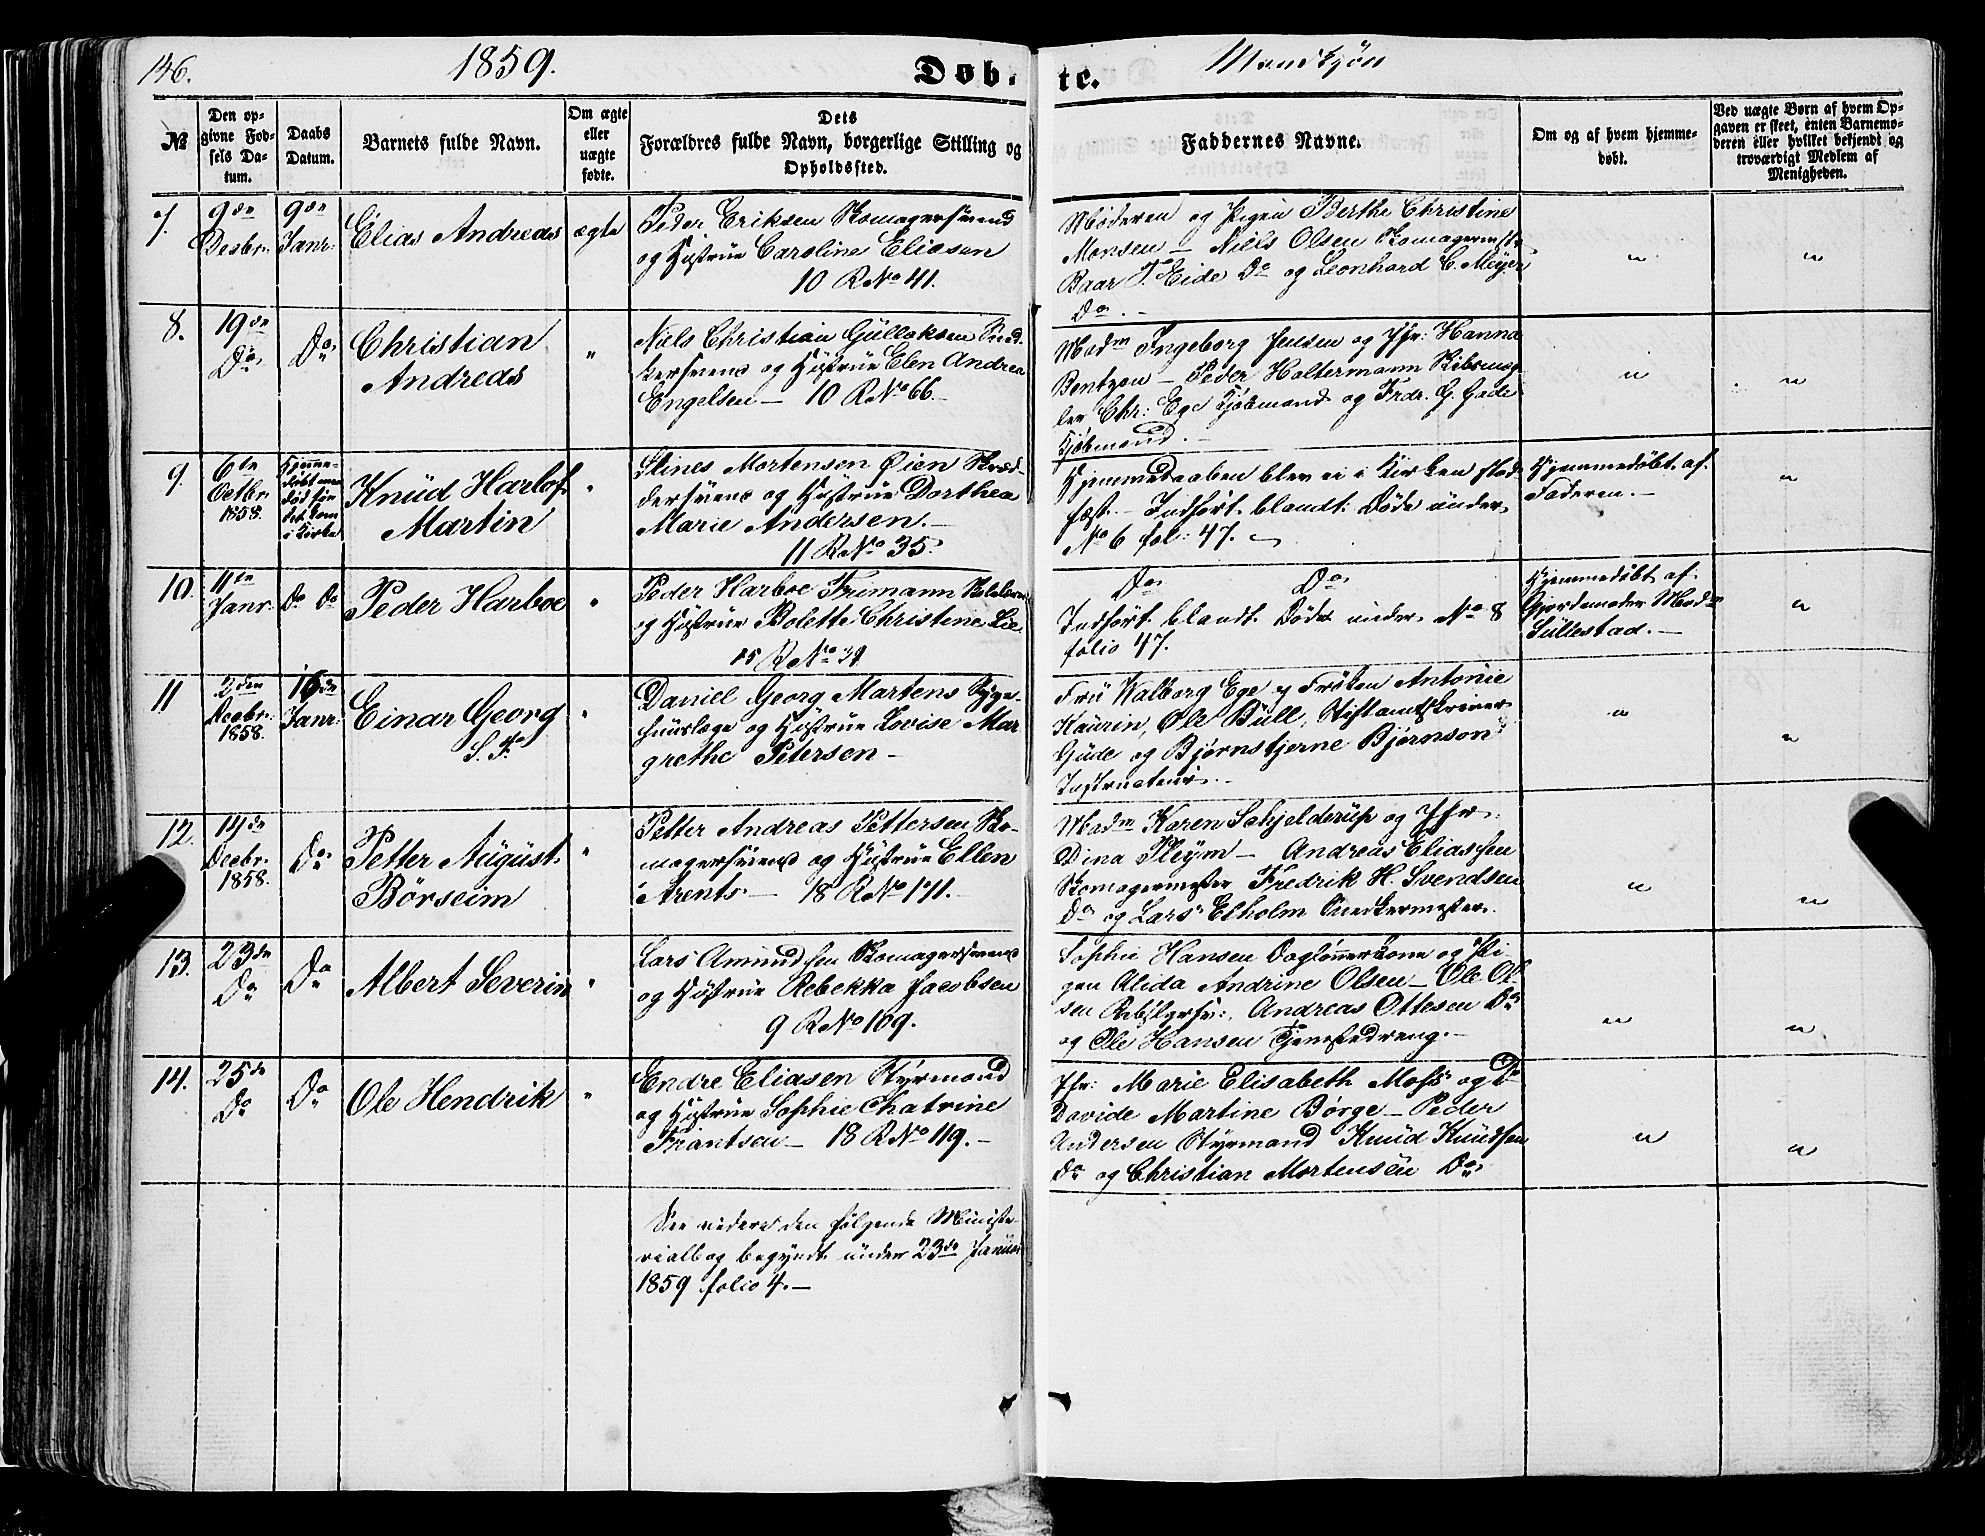 146.
1859.
Døb-
te.
Mandkjøn
№
Den op-
givne Fød-
sels Da-
tum.
Daabs
Datum.
Barnets fulde Navn.
Om ægte
eller
uægte
fødte.
Dets
Forældres fulde Navn, borgerlige Stilling og
Opholdssted.
Faddernes Navne.
Om og af hvem hjemme-
døbt.
Ved uægte Børn af hvem Op-
gaven er skeet, enten Barnemo-
deren eller hvilket bekjendt og
troværdigt Medlem af
Menigheden.
7.
9de
Decbr.
9de
Janr:
Elias Andreas
ægte
Peder Eriksen Skomagersvend
og Hustrue Caroline Eliasen
10 R No 41.
Moderen og Pigen Berthe Christine
Monsen - Niels Olsen Skomagermstr
Baar T. Eide Do og Leonhard C. Meyer
Do. -
"
"
8.
19de
Do
Do
Christian
Andreas
"
Niels Christian Gullaksen Sned-
kersvend og Hustrue Elen Andrea
Engelsen - 10 R No 66. -
Madm Ingeborg Jensen og Jfr: Hanna
Bentzon - Peder Haltermann Skibsmæg-
ler Chr: Ege Kjøbmand og Frdr. G. Gade
Kjøbmand. -
"
"
9.
6te
Octbr.
1858.
Hjemme-
døbt men
død før
det kom
i Kirke
Knud Harlof
Martin
"
Stines Mortensen Øien Skræd-
dersvend og Hustrue Dorthea
Marie Andersen. -
11 R No 35.
Hjemmedaaben blev ei i Kirken stad-
fæst. - Indført blandt Døde under
No 6 fol: 47.
Hjemmedøbt af
Faderen. -
"
10.
11te
Janr.
Do Do
Peder Harboe
"
Peder Harboe Frimann
og Hustrue Bolette Christine Lie
15 R No 29
Do Do
Indført blandt Døde under No 8
folio 47.
Hjemmedøbt af
Gjordemoder Madm
Lillestad. -
"
11
2den
Decbr.
1858.
16de
Janr:
Einar Georg
"
Daniel Georg Martens Syge-
huuslæge og Hustrue Lovise Mar
grethe Petersen -
Fru Walborg Ege og Frøken Antonie
Kaurin, Ole Bull, Stiftamtskriver
Gude og Bjørnstjerne Bjørnson
Instructeur. -
"
"
12.
14de
Decbr.
1858.
Do
Petter August
Børseim
"
Petter Andreas Pettersen Sko-
magersvend og Hustrue Ellen
Arents - 18 R No 171. -
Madm Karen Schjelderup og Jfr
Dina Pleym - Andreas Eliassen
Skomagermester Fredrik H. Svendsen
Do og Lars Ekholm Snedkermester.
"
"
13.
23de
Do
Do
Albert Severin
"
Lars Amundsen Skomagersvend
og Hustrue Rebekka Jacobsen
9 R No 109.
Sophie Hansen Daglønnerkone og Pi-
gen Alida Andrine Olsen - Ole Ol-
sen Rebslgrsv:, Andreas Ottesen Do
og Ole Hansen Tjenestedreng. -
"
"
14.
25de
Do
Do
Ole Hendrik
"
Endre Eliasen Styrmand
og Hustrue Sophie Chatrine
Frantsen - 18 R No 119. -
Jfr: Marie Elisabeth Moss og Do
Davide Martine Børge - Peder
Andersen Styrmand Knud Knudsen
Do og Christian Mortensen Do
"
"
See videre den følgende Ministe
rialbog begyndt under 23de Januar
1859 folio 4. -